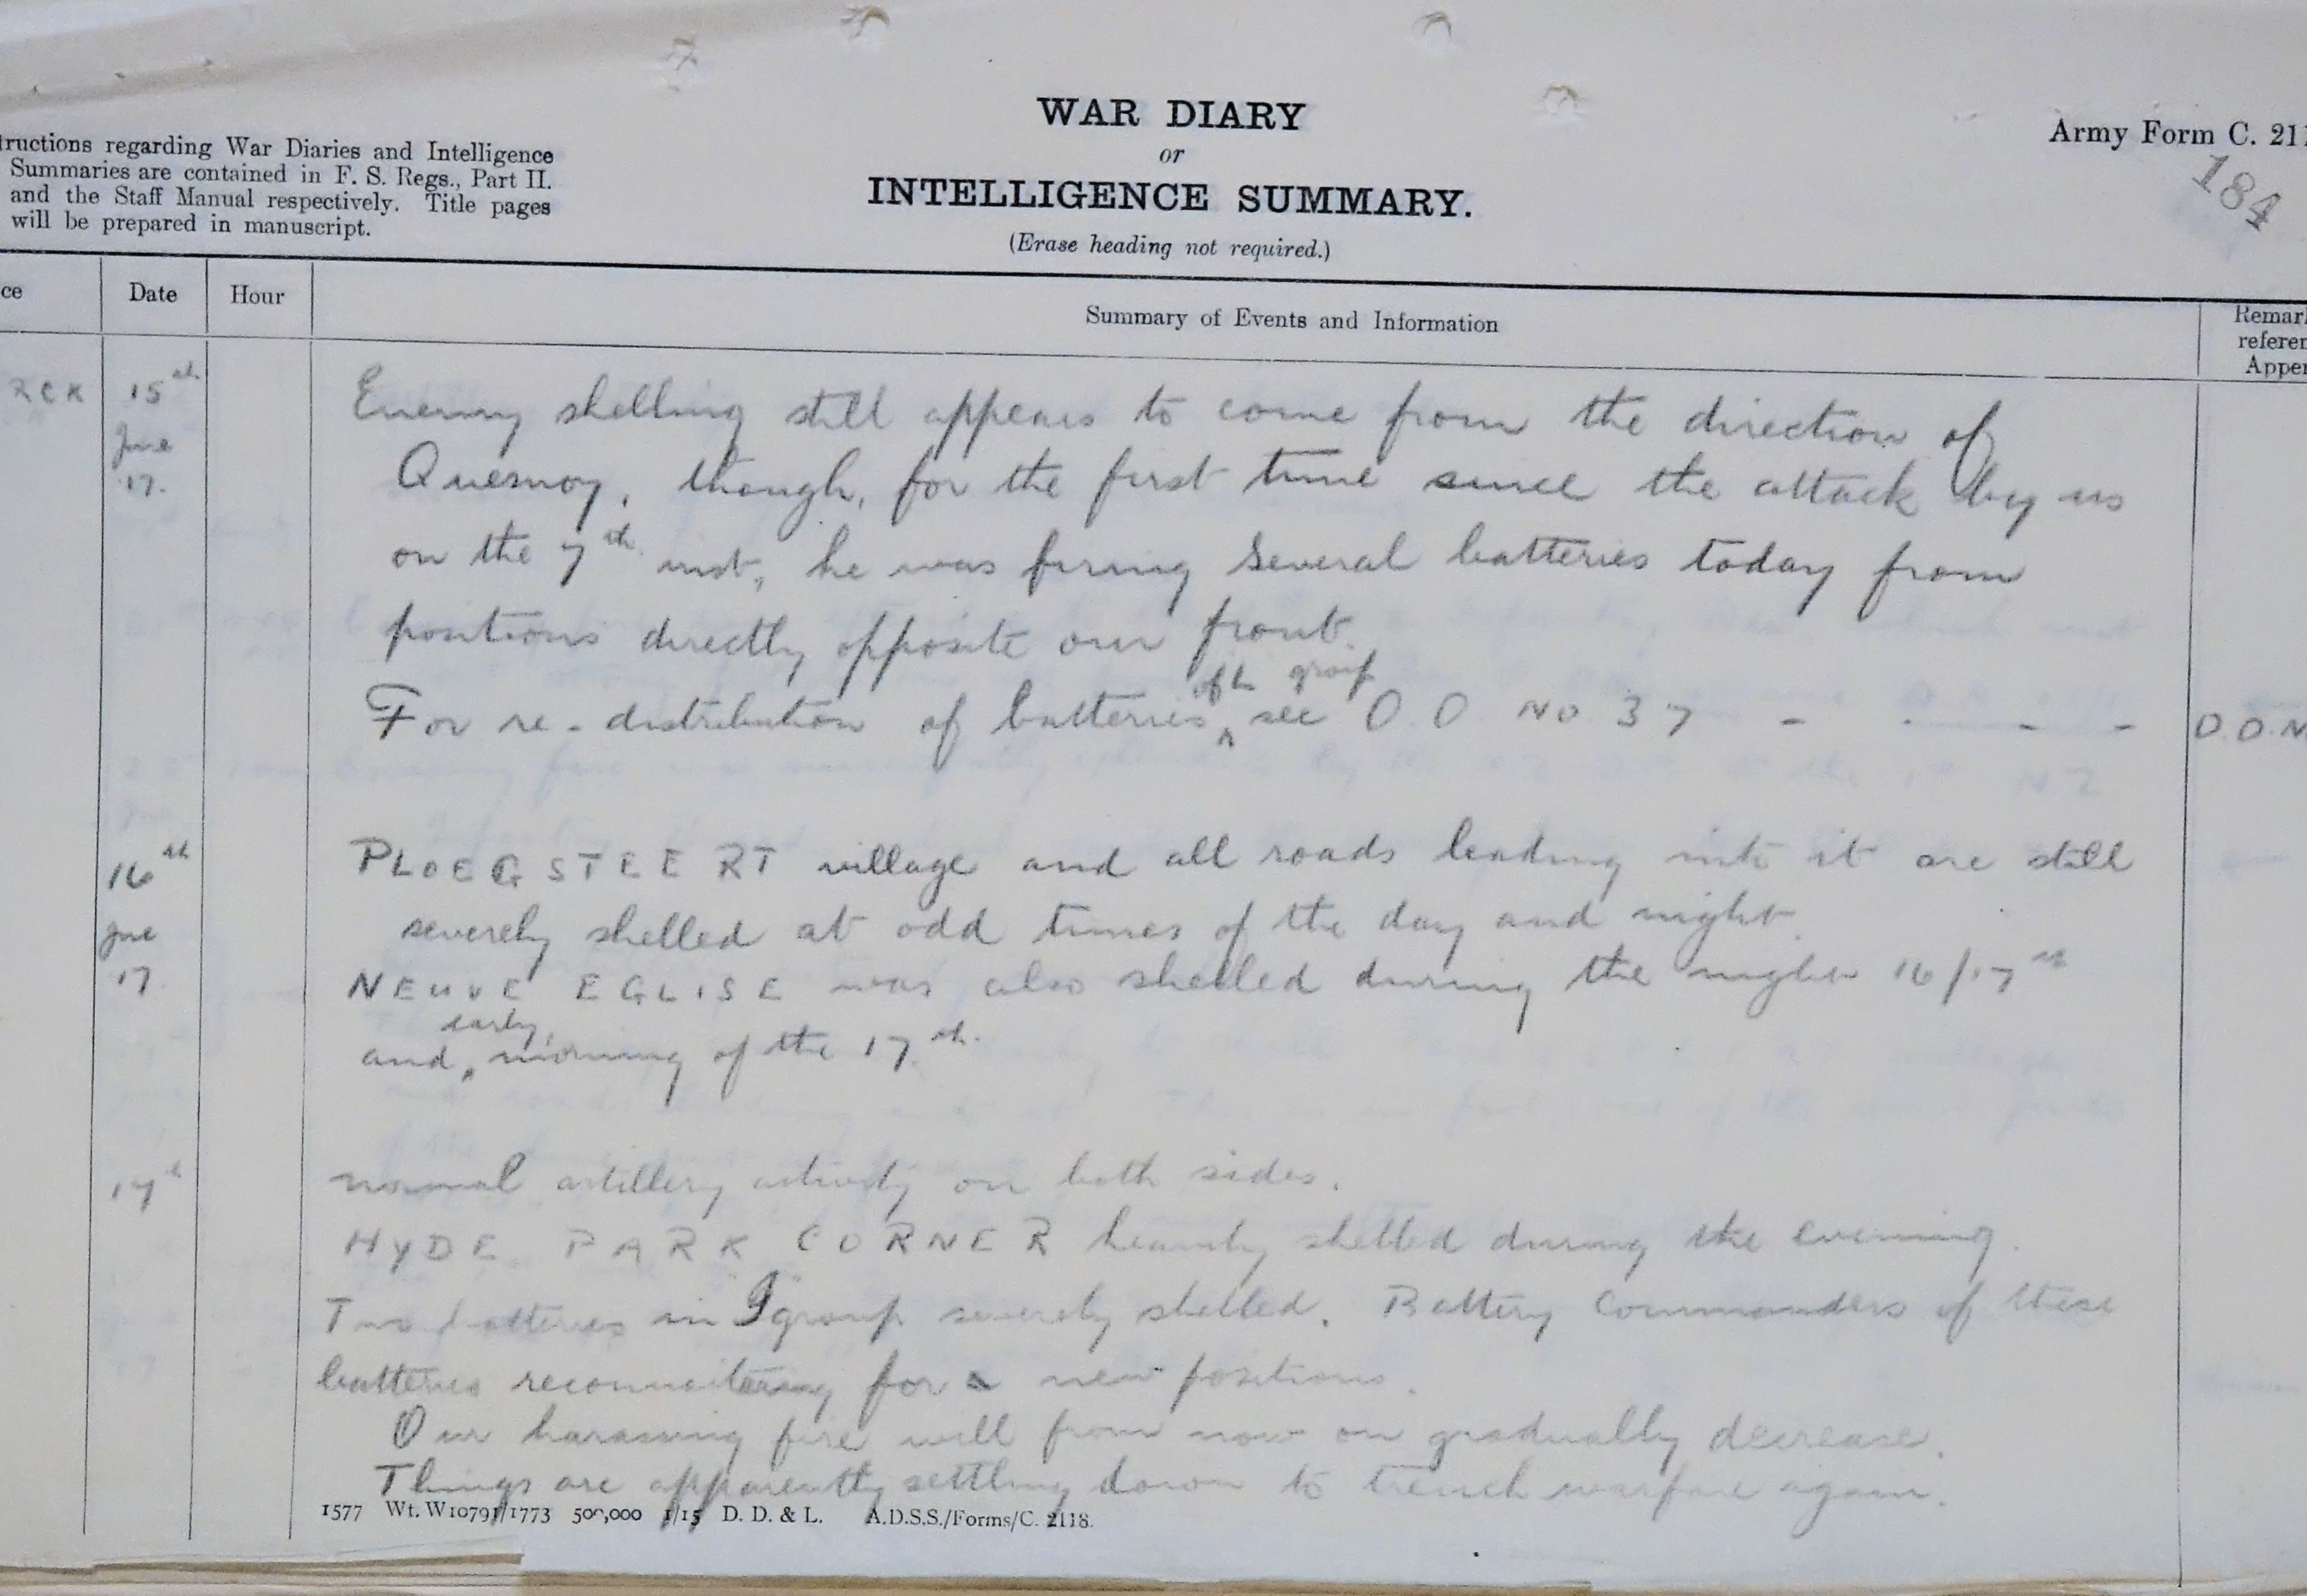 WAR DIARY
or
INTELLIGENCE SUMMARY.
(Erase heading not required.)
Army Form C. 211
184
tructions regarding War Diaries and Intelligence
Summaries are contained in F. S. Regs., Part II.
and the Staff Manual respectively. Title pages
will be prepared in manuscript.
ce
Date
Hour
Summary of Events and Information
Remar
referen
Appen
RCK
15th
June
17.
Enemy shelling still appears to come from the direction of
Quesnoy, though, for the first time since the attack by us
on the 7th inst, he was firing several batteries today from
positions directly opposite our front.
of the group
For re-distribution of batteries ^ see O O No 37 - - - -
O.O.N
16th
June
17
PLOEGSTEERT village and all roads leading into it are still
severely shelled at odd times of the day and night.
NEUVE EGLISE was also shelled during the night 16/17th
early
and ^ morning of the 17th.
17th
normal artillery activity on both sides.
HYDE PARK CORNER heavily shelled during the evening.
Two batteries in group severely shelled. Battery Commanders of these
batteries reconnoitering for new positions.
Our harassing fire will from now on gradually decrease.
Things are apparently settling down to trench warfare again.
1577 Wt. W10791/1773 500,000 1/15 D. D. & L. A.D.S.S./Forms/C. 2118.